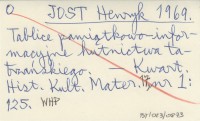 O JOST Henryk 1969.
Tablice pamiątkowo-infor-
macyjne hutnictwa ta-
trzańskiego. — Kwart.
Hist. Kult. Mater. 17, nr 1:
125. WHP